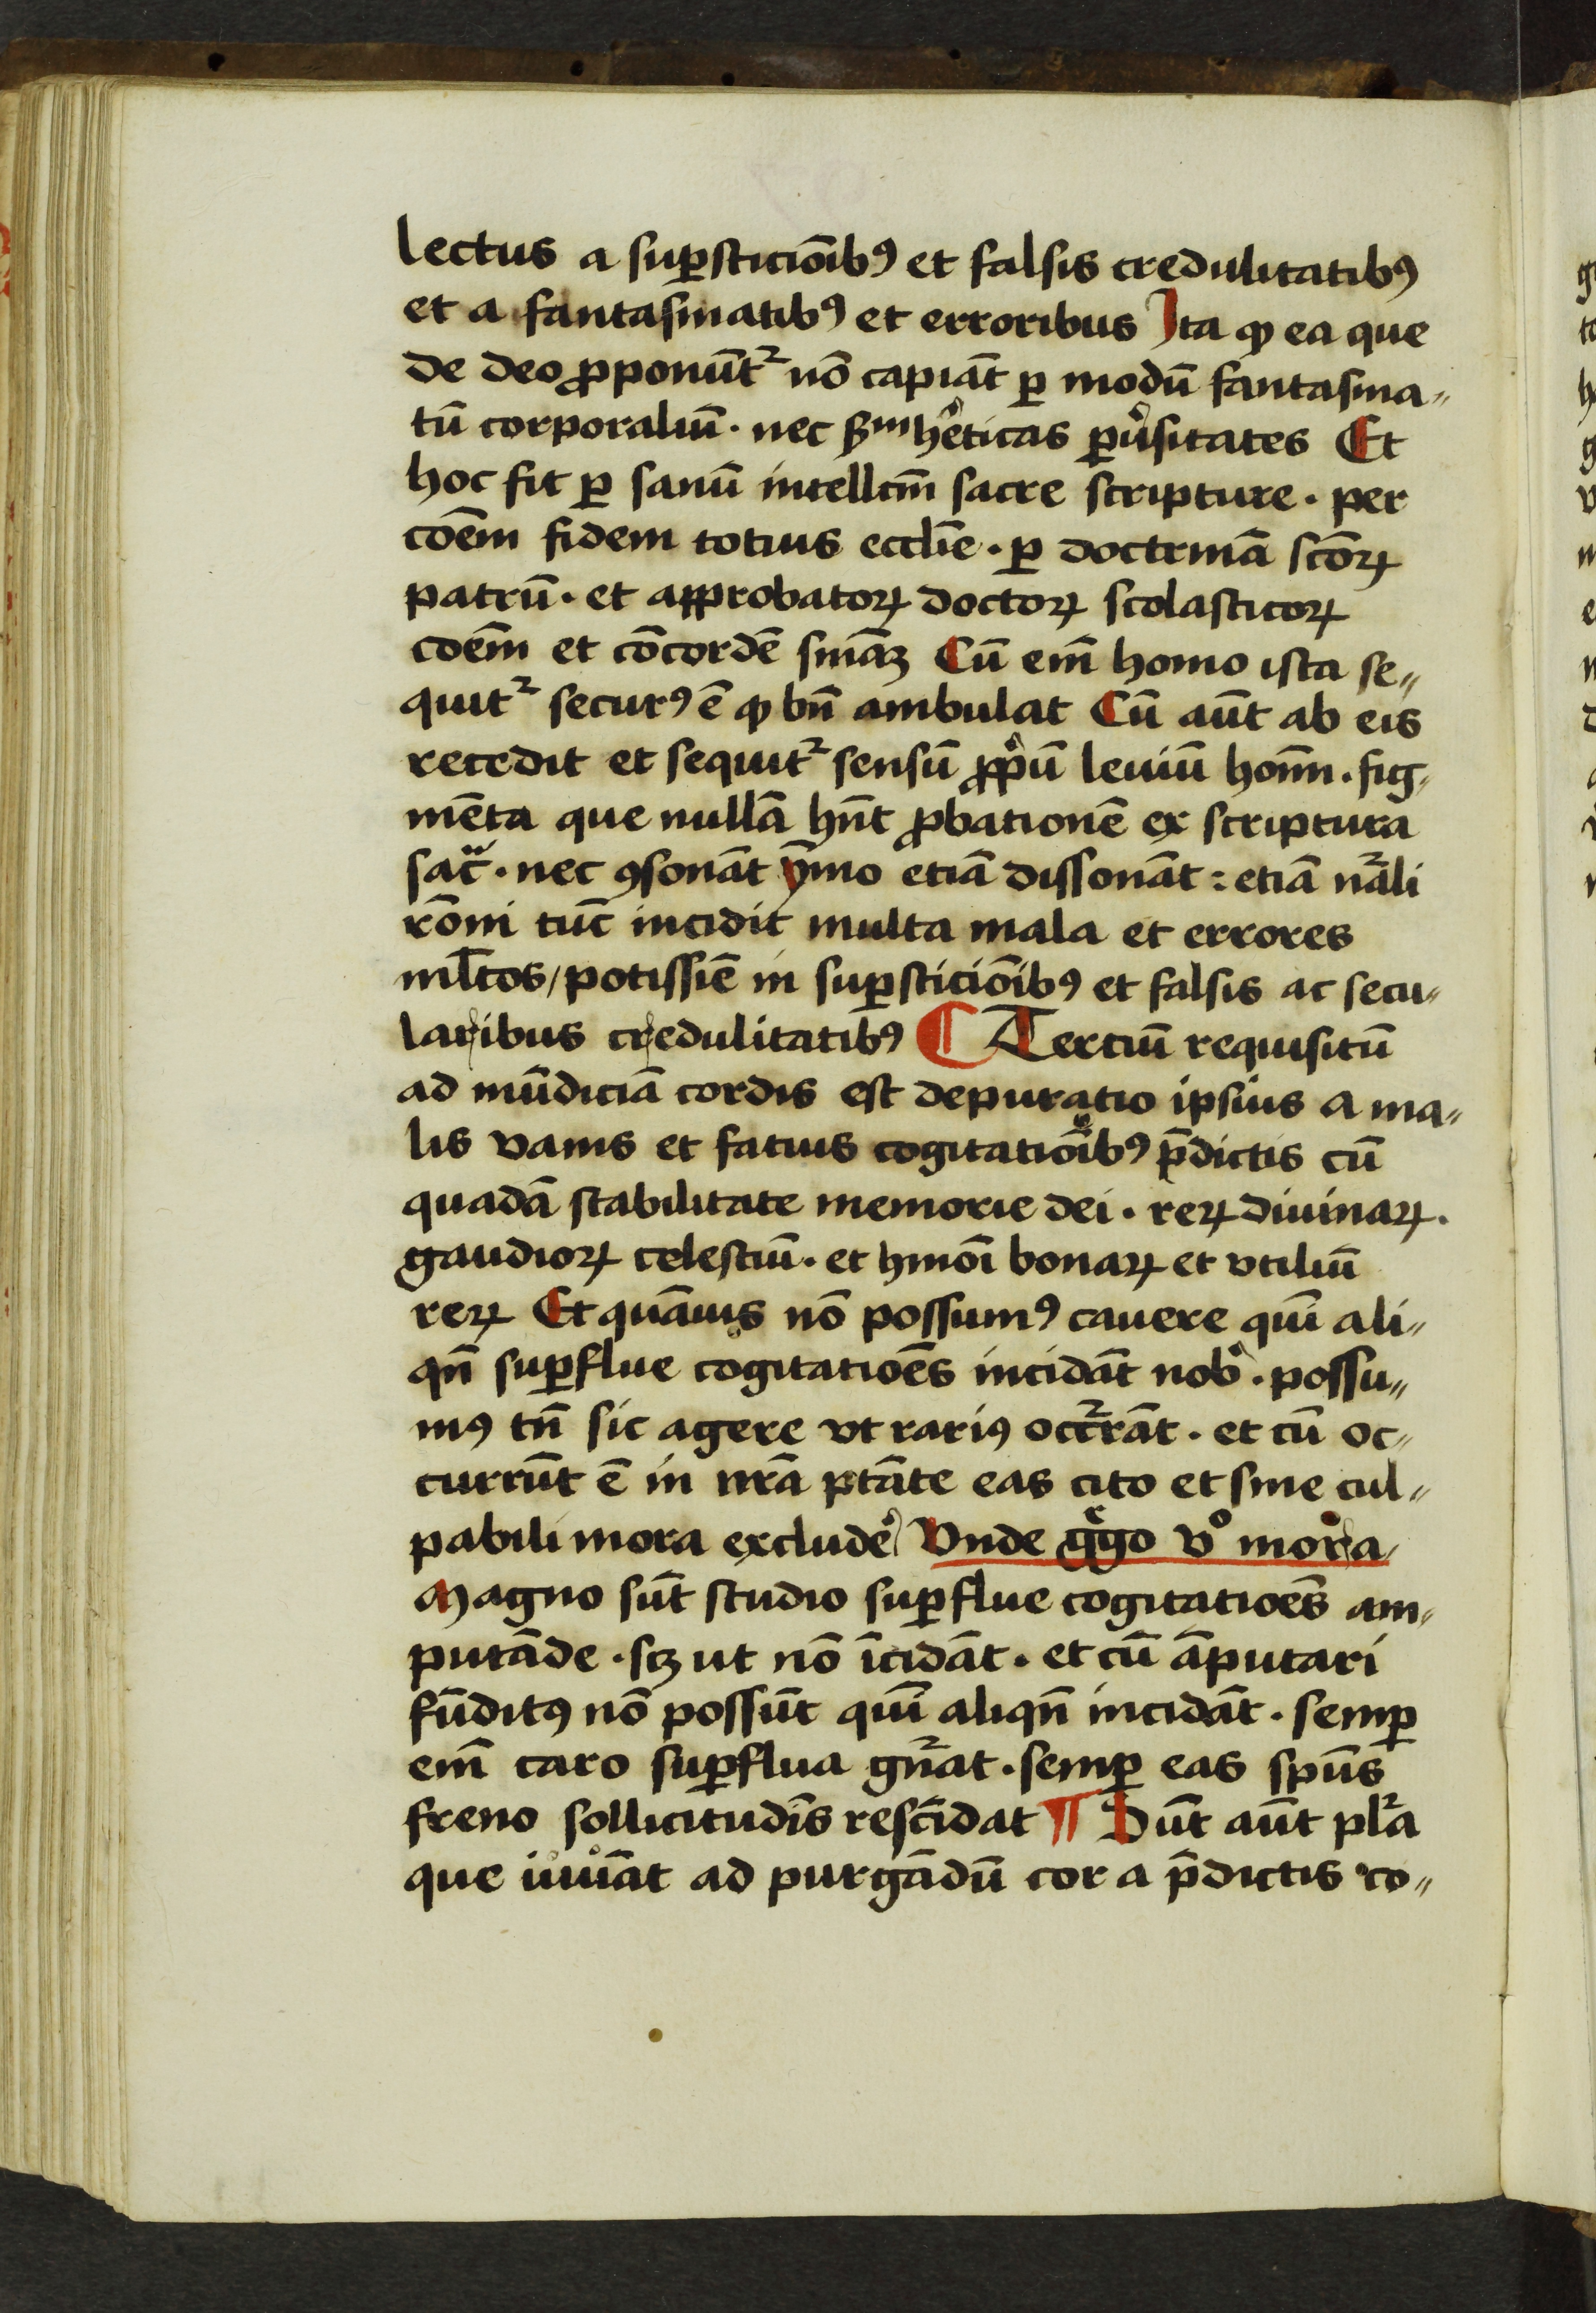 lectus a suꝑsticiōibꝰ et falsis credulitatibꝰ
et a fantasmatibꝰ et erroribus Ita ꝙ ea que
de deo ꝓponūt᷑ nō capiāt ꝑ modū fantasma〃
tū corporaliū · nec ẜm he͛ticas ꝑu͛sitates Et
hoc fit ꝑ sanū intellcm̄ sacre scripture · per
cōem̄ fidem totius eccl̄ie · ꝑ doctrinā scōꝝ
patrū · et approbatoꝝ doctoꝝ scolasticoꝝ
cōem̄ et cōcordē sniāꝫ Cū em̄ homo ista se〃
quit᷑ securꝰ ē ꝙ bn̄ ambulat Cū aūt ab eis
recedit et sequit᷑ sensū ꝓpͥū leuiū hoīm · fig〃
mēta que nullā hn̄t ꝓbationē ex scriptura
sac̄ · nec ꝯsonāt ȳmo etiā dissonāt : etiā nāli
rōni tūc incidit multa mala et errores
ml̄tos / potissīe in suꝑsticiōibꝰ et falsis ac secu〃
laribus credulitatibꝰ ¶ Tertiū requisitū
ad mūdiciā cordis est depuratio ipsius a ma〃
lis vanis et fatuis cogitatiōibꝰ p̄dictis cū
quadā stabilitate memorie dei · reꝝ diuinaꝝ ·
gaudioꝝ celestiū · et hmōi bonaꝝ et vtiliū
reꝝ Et quāuis nō possumꝰ cauere quī ali〃
qn̄ suꝑflue cogitatiōes incidāt nob͛ · possu〃
mꝰ tn̄ sic agere vt rariꝰ occ᷑rāt · et cū oc〃
currūt ē in nr̄a ptāte eas cito et sine cul〃
pabili mora exclude͛ Vnde g͛go vͦ mora
Magno sūt studio suꝑflue cogitatiōes am〃
putāde · scꝫ ut nō īcidāt · et cū āputari
fūditꝰ nō possūt quī aliqn̄ incidāt · semꝑ
em̄ caro suꝑflua gn᷑at · semꝑ eas spūs
freno sollicitudīs rescīdat ¶ Sūt aūt pl᷑a
que iuuāt ad purgādū cor a p̄dictis co〃